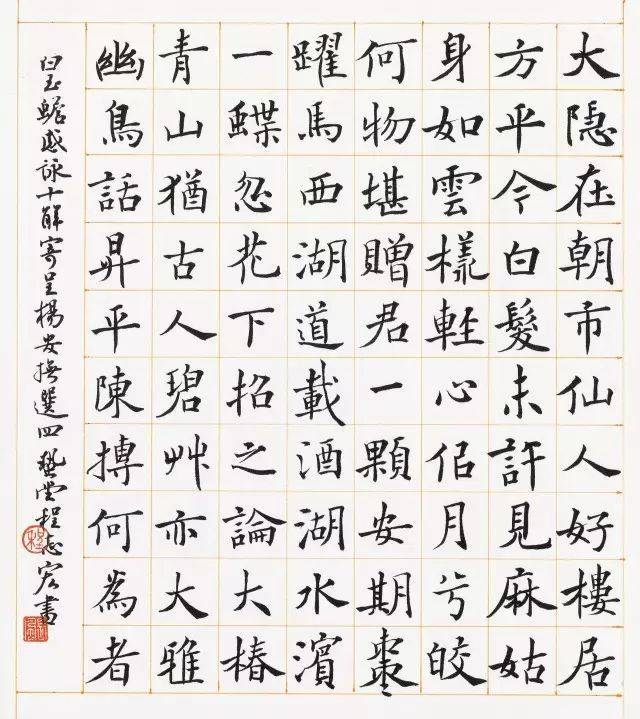 大隐在朝市仙人好樓居
方平今白髮未許見麻姑
身如雲樣輕心侶月兮皎
何物堪贈君一顆安期棗
躍馬西湖道載酒湖水濱
一蝶忽花下招之論大椿
青山猶古人碧艸亦大雅
幽鳥話昇平陳摶何為者
白玉蟾感詠十解寄呈楊安撫選四 堂程志宏書
程